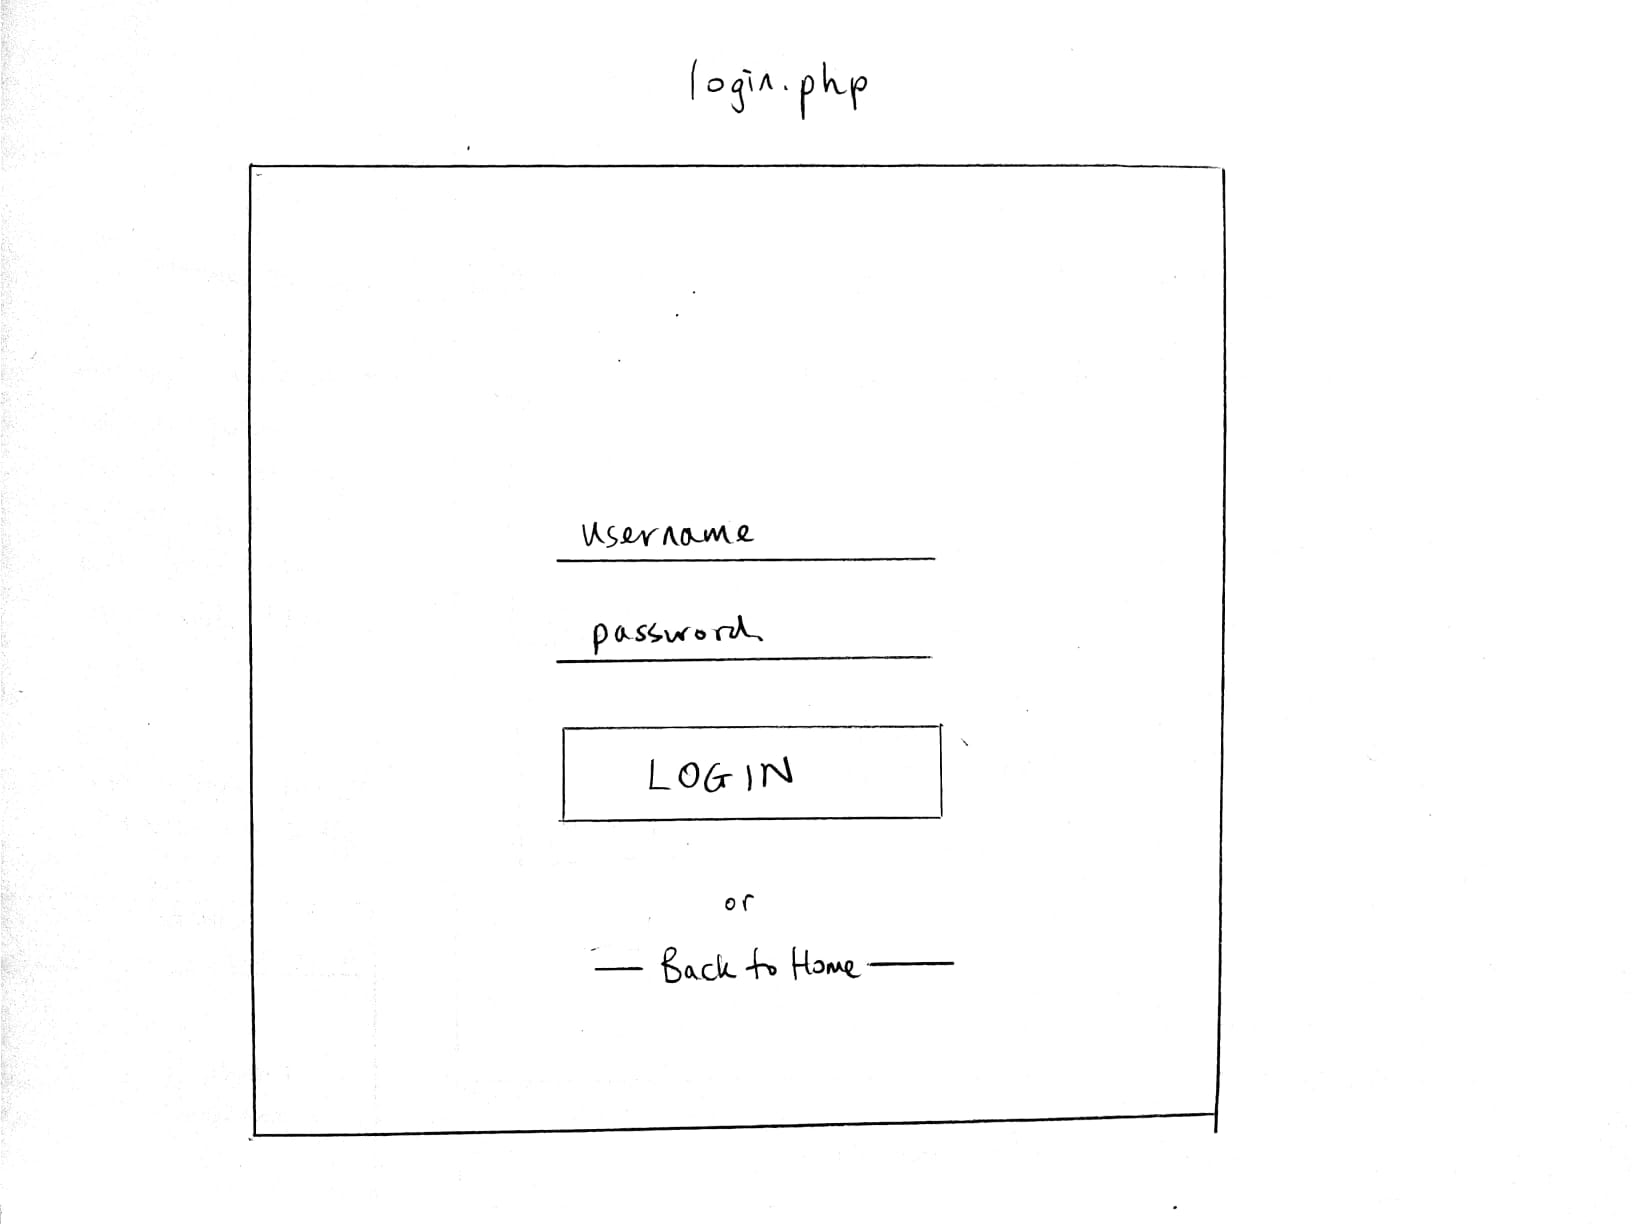 login.php
username
password
LOGIN
or
Back to Home